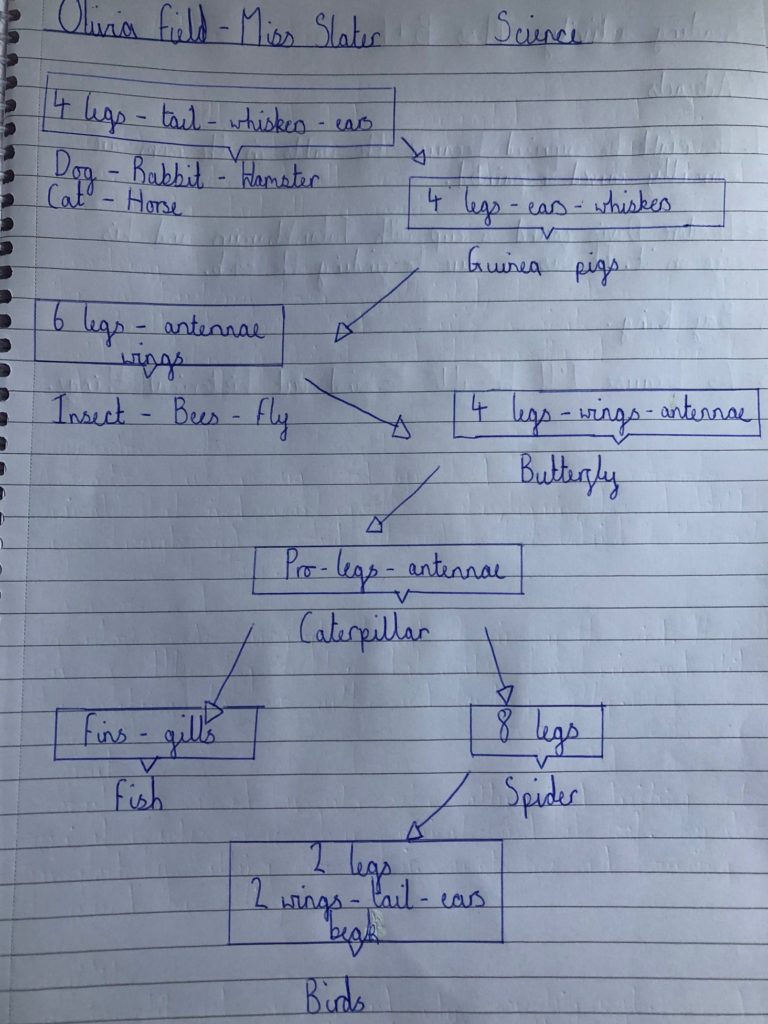 Olivia Field - Miss Slater Science
4 legs - tail - whiskers - ears
Dog - Rabbit - Hamster
Cat - Horse
4 legs - ears - whiskers
Guinea pigs
6 legs - antennae
wings
Insect - Bees - Fly
4 legs - wings - antennae
Butterfly
Pro-legs - antennae
Caterpillar
Fins - gills
Fish
8 legs
Spider
2 legs
2 wings - tail - ears
beak
Birds